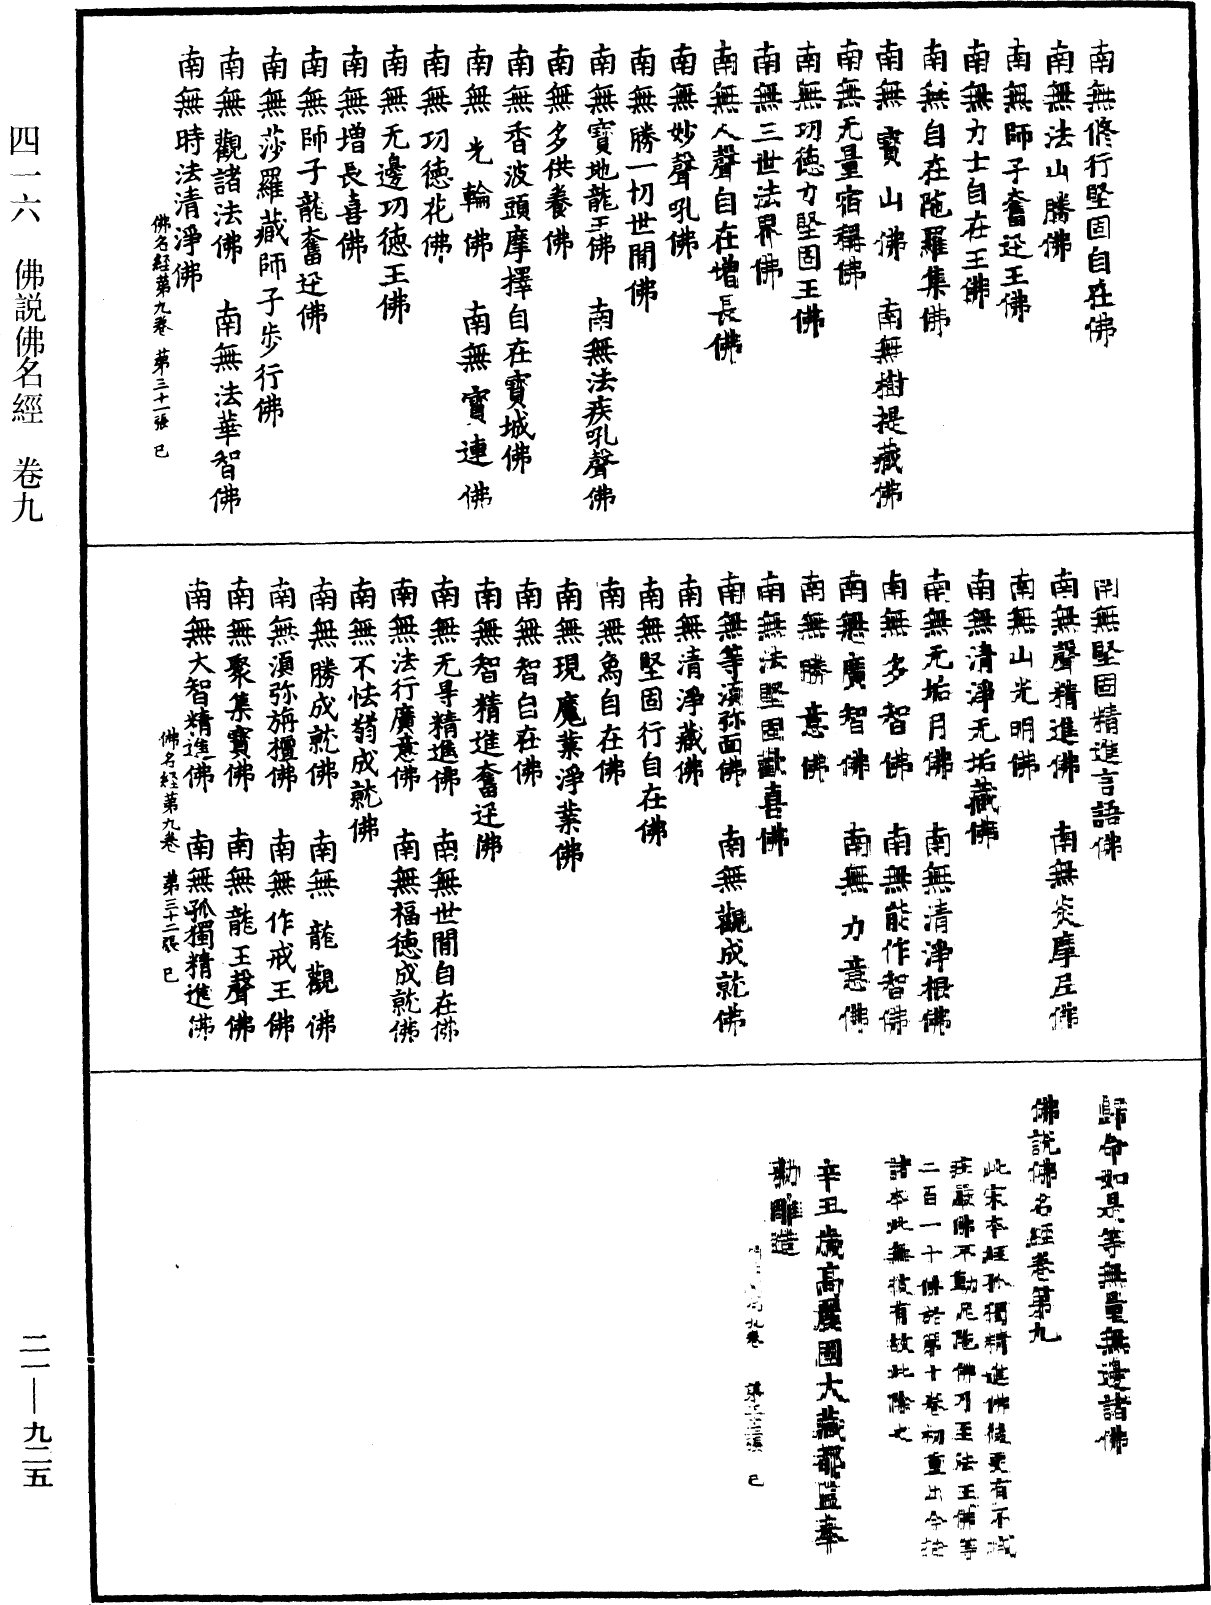 南無脩行堅固自在佛
南無法山勝佛
南無師子奮迅王佛
南無力士自在王佛
南無自在陁羅集佛
南無寶山佛　南無樹提藏佛
南無无量宿稱佛
南無功徳力堅固王佛
南無三世法界佛
南無人聲自在增長佛
南無妙聲吼佛
南無勝一切世閒佛
南無寶地龍王佛　南無法疾吼聲佛
南無多供養佛
南無香波頭摩擇自在寶城佛
南無光輪佛　南無寶連佛
南無功徳花佛
南無无邊功徳王佛
南無增長喜佛
南無師子龍奮迅佛
南無莎羅藏師子步行佛
南無觀諸法佛　南無法華智佛
南無時法清淨佛
佛名経第九卷　第三十一張　已
南無堅固精進言語佛
南無聲精進佛　南無炎摩尼佛
南無山光明佛
南無清淨无垢藏佛
南無无垢月佛　南無清淨根佛
南無多智佛　南無能作智佛
南無廣智佛　南無力意佛
南無勝意佛
南無法堅固歡喜佛
南無等湏弥面佛　南無觀成就佛
南無清淨藏佛
南無堅固行自在佛
南無為自在佛
南無現魔業淨業佛
南無智自在佛
南無智精進奮迅佛
南無无㝵精進佛　南無世閒自在佛
南無法行廣意佛　南無福徳成就佛
南無不怯弱成就佛
南無勝成就佛　南無龍觀佛
南無湏弥旃檀佛　南無作戒王佛
南無聚集寶佛　南無龍王聲佛
南無大智精進佛　南無孤獨精進佛
佛名経第九卷　第三十二張　已
歸命如是等無量無邊諸佛
佛說佛名經卷第九
此宋本經孤獨精進佛後更有不
莊嚴佛不動尼陁佛乃至法王佛等
二百一十佛詺第十卷初重出今
諸本此無彼有故此除之
辛丑歲高麗國大藏都監奉
勅雕造
九卷　第三十三張　已
四一六　佛説佛名經　卷九
二一—九二五